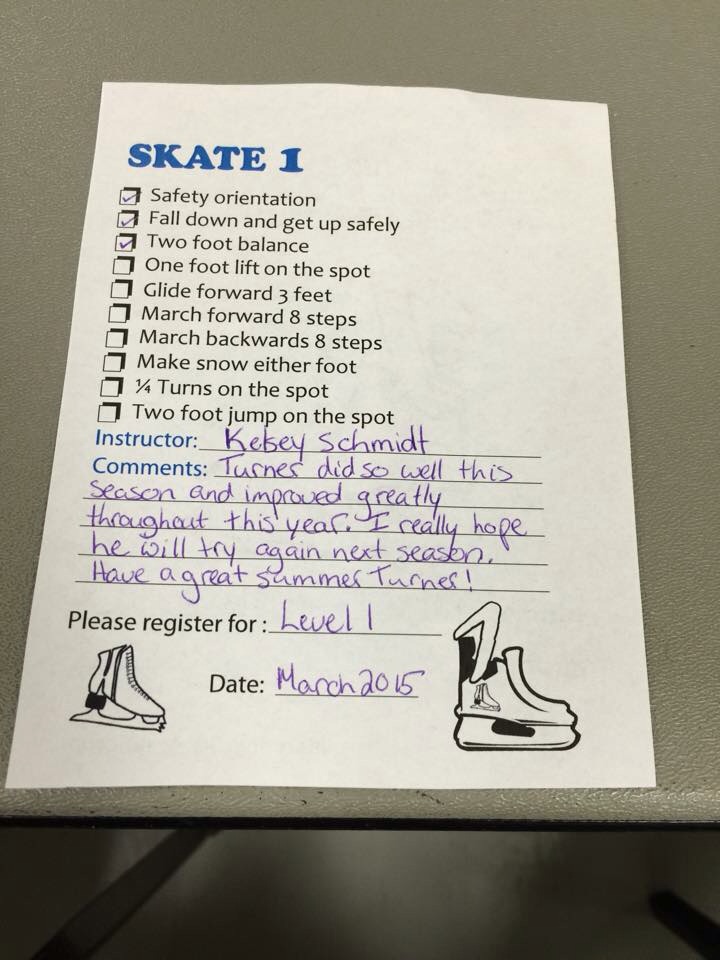 SKATE 1
Safety orientation
Fall down and get up safely
Two foot balance
One foot lift on the spot
Glide forward 3 feet
March forward 8 steps
March backwards 8 steps
Make snow either foot
¼ Turns on the spot
Two foot jump on the spot
Instructor: Kelsey Schmidt
Comments: Turner did so well this
season and improved greatly
throughout this year. I really hope
he will try again next season.
Have a great summer Turner!
Please register for: Level 1
Date: March 2015